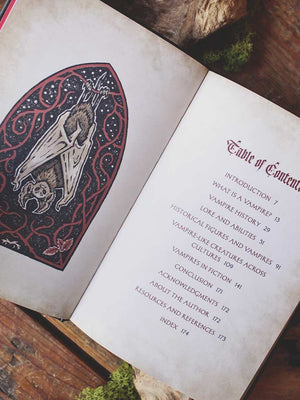 Table of Content
INTRODUCTION 7
WHAT IS A VAMPIRE? 13
VAMPIRE HISTORY 29
LORE AND ABILITIES 51
HISTORICAL FIGURES AND VAMPIRES 91
VAMPIRE-LIKE CREATURES ACROSS
CULTURES 109
VAMPIRES IN FICTION 141
CONCLUSION 171
ACKNOWLEDGMENTS 172
ABOUT THE AUTHOR 172
RESOURCES AND REFERENCES 173
INDEX 174